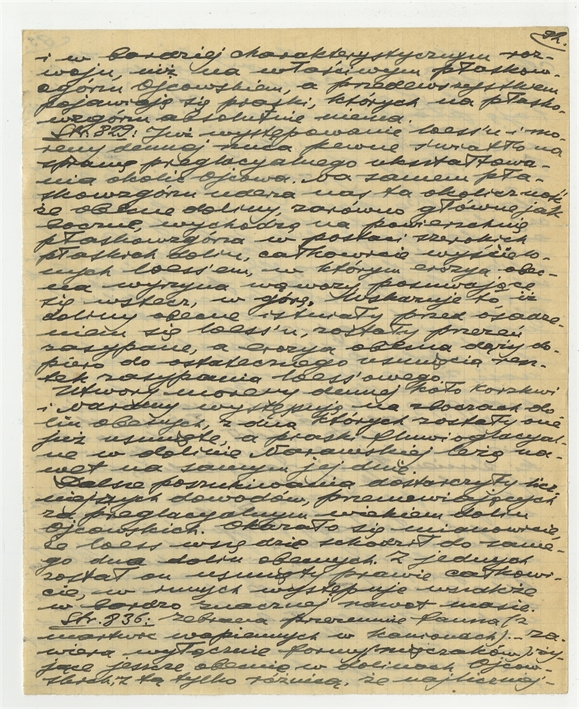 92.
i w bardziej charakterystycznym roz-
woju, niż na właściwym płaskow-
zgórzu Ojcowskiem, a przedewszystkiem
pojawiają się piaski, których na płasko-
wzgórzu absolutnie niema.
Str. 833: Już występowanie loess'u i mo-
reny dennej rzuca pewne światło na
sprawę preglacyalnego ukształtowa-
nia okolic Ojcowa. Na samem pła-
skowzgórzu uderza nas ta okoliczność,
że obecne doliny zarówno główne jak
boczne, wychodzą na powierzchnię
płaskowzgórza w postaci szerokich
płaskich dolin, całkowicie wyścielo-
nych loess'em, w którym erozya obec-
na wyrzyna wąwozy posuwające
się wstecz, w górę. Wskazuje to, iż
doliny obecne istniały przed osadze-
niem się loess'u, zostały przezeń
zasypane, a erozya obecna dąży do-
piero do ostatecznego usunięcia resz-
tek zasypania loess'owego.
Utwory moreny dennej koło Korzkwi
i Naramy występują na zboczach do-
lin obecnych, z dna których zostały one
już usunięte, a piaski fluwioglacyal-
ne w dolinie Naramskiej leżą na-
wet na samym jej dnie.
Dalsze poszukiwania dostarczyły licz-
niejszych dowodów, przemawiających
za preglacyalnym wiekiem dolin
Ojcowskich. Okazało się mianowicie,
że loess wszędzie schodził do same-
go dna dolin obecnych. Z jednych
został on usunięty prawie całkowi-
cie, w innych występuje wszakże
w bardzo znacznej nawet masie.
Str. 836: Zebrana przezemnie fauna (z
martwic wapiennych w kanionach) - za-
wiera wyłącznie formy mięczaków, ży-
jące jeszcze obecnie w dolinach Ojcow-
skich, z tą tylko różnicą, że najliczniej-